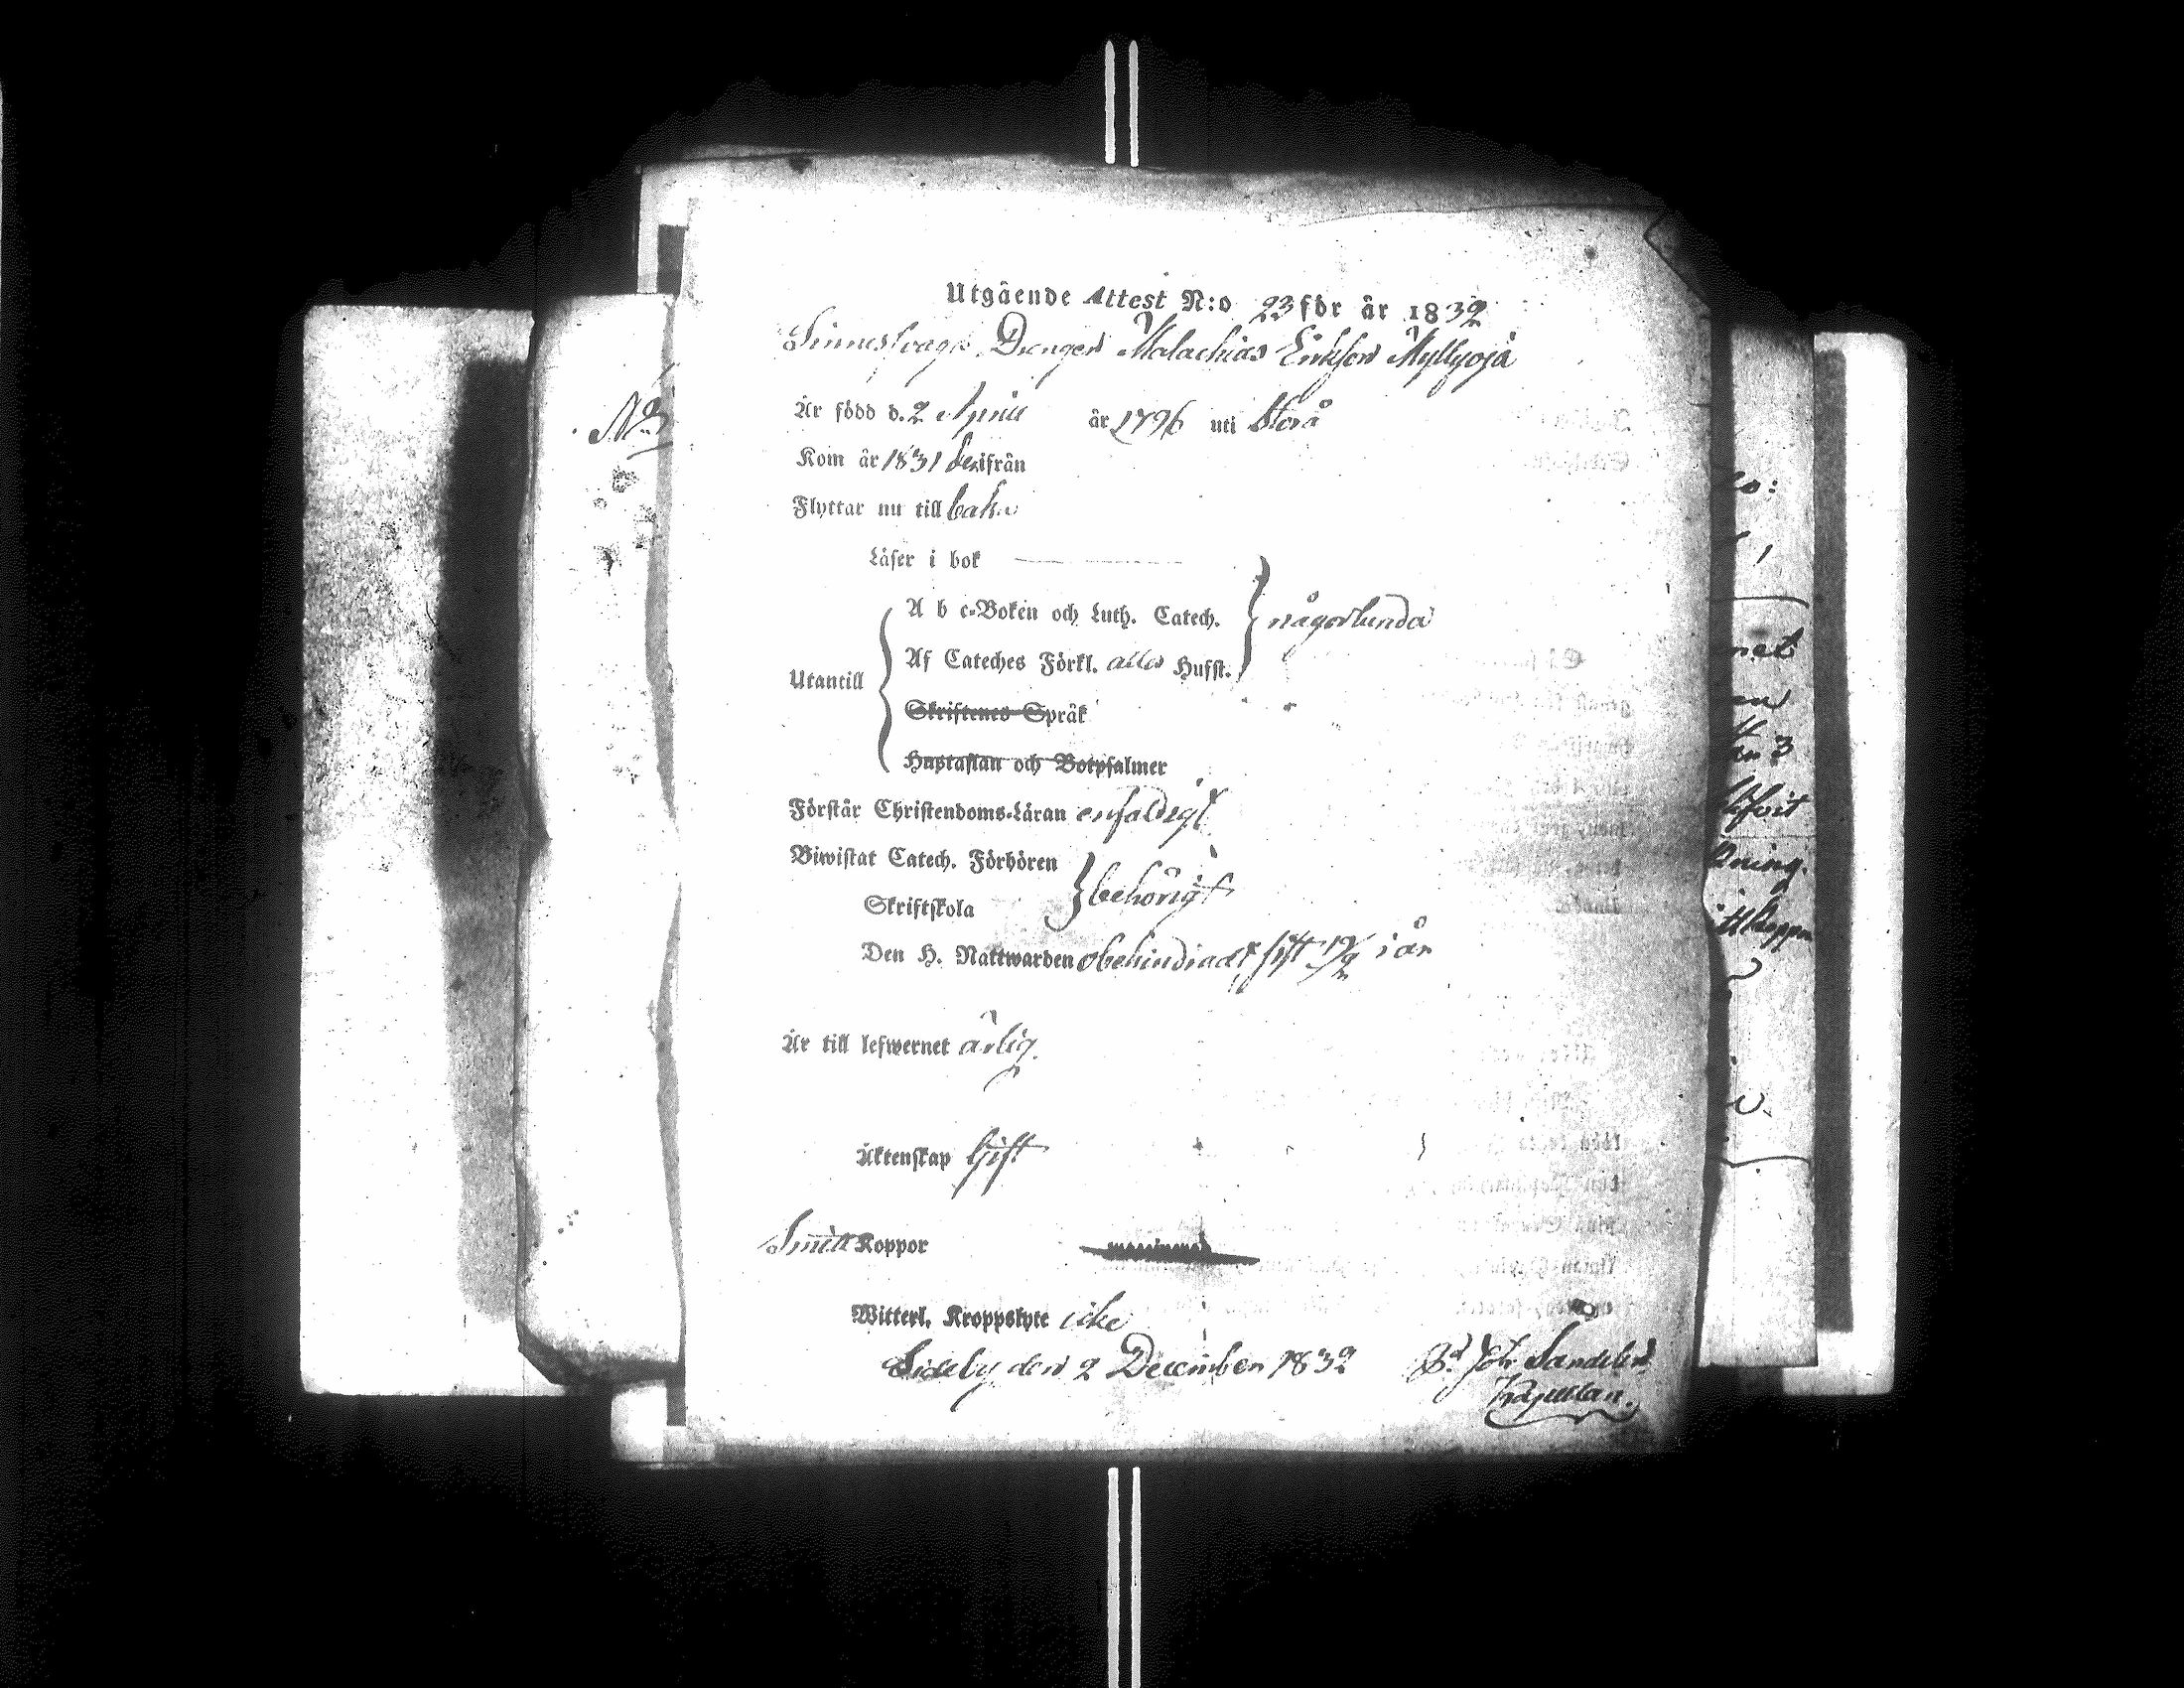 Utgående Attest N:o 23 för år 1832
Sinnessvage Drengen Malachias Erikson Myllyoja
Är född d. 2 April år 1796 uti Storå
Kom år 1831 derifrån
Flyttar nu till baka
Läser i bok
A b c-Boken och Luth. Catech. någorlunda
Utantill
Af Cateches Förkl. alla Hufst.
Skriftenes Språk
Hustaflan och Botpsalmer
Förstår Christendoms-Läran enfaldigt
Biwistat Catech. Förhören
behörigt
Skriftskola
Den H. Nattwarden obehindradt sist i år
Är till lefwernet ärlig
Äktenskap Gift
Koppor
Witterl. Kroppslyte icke
Sideby den 2 December 1832 Joh Sandelin
Kapellan.
No